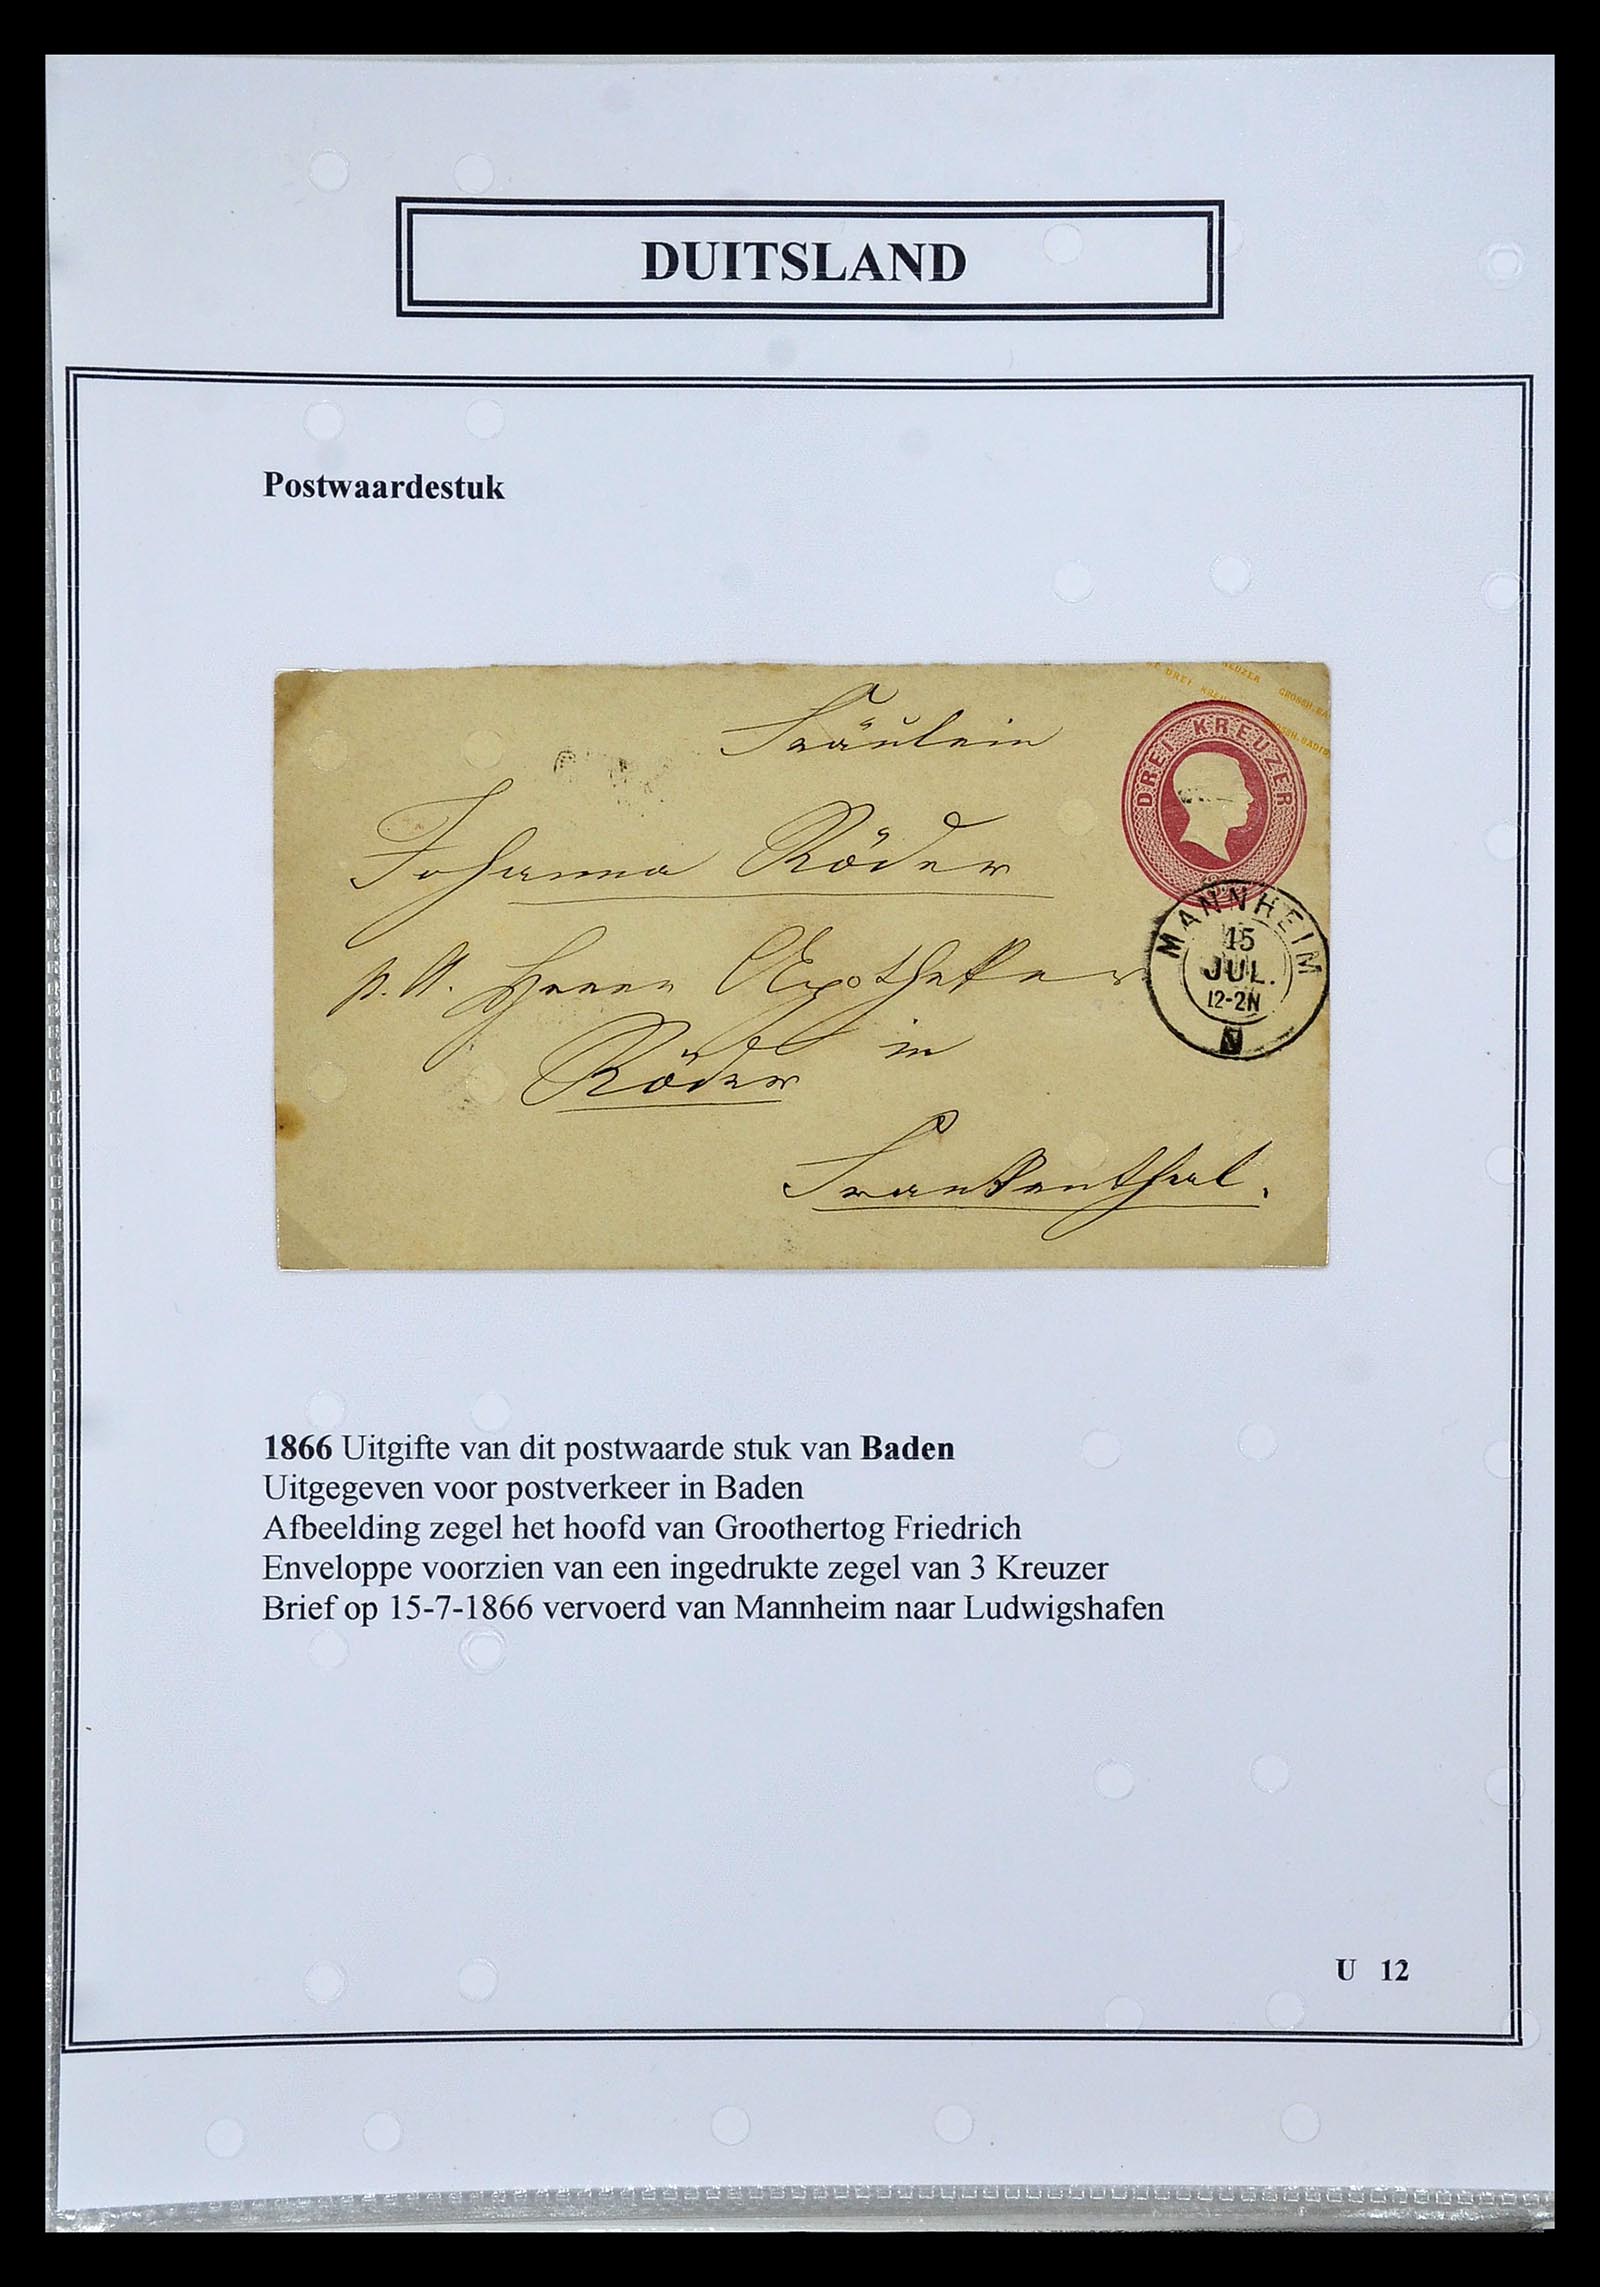 DUITSLAND
Postwaardestuk
KREUZER GROSSH. BA
DREI KREU GROSSH. BADIS
DREI KREUZER
Fräulein
Johanna Röder
p. A. Herrn Apotheker
Röder in
Frankenthal.
MANNHEIM
15
JUL.
12-2N
1866 Uitgifte van dit postwaarde stuk van Baden
Uitgegeven voor postverkeer in Baden
Afbeelding zegel het hoofd van Groothertog Friedrich
Enveloppe voorzien van een ingedrukte zegel van 3 Kreuzer
Brief op 15-7-1866 vervoerd van Mannheim naar Ludwigshafen
U 12